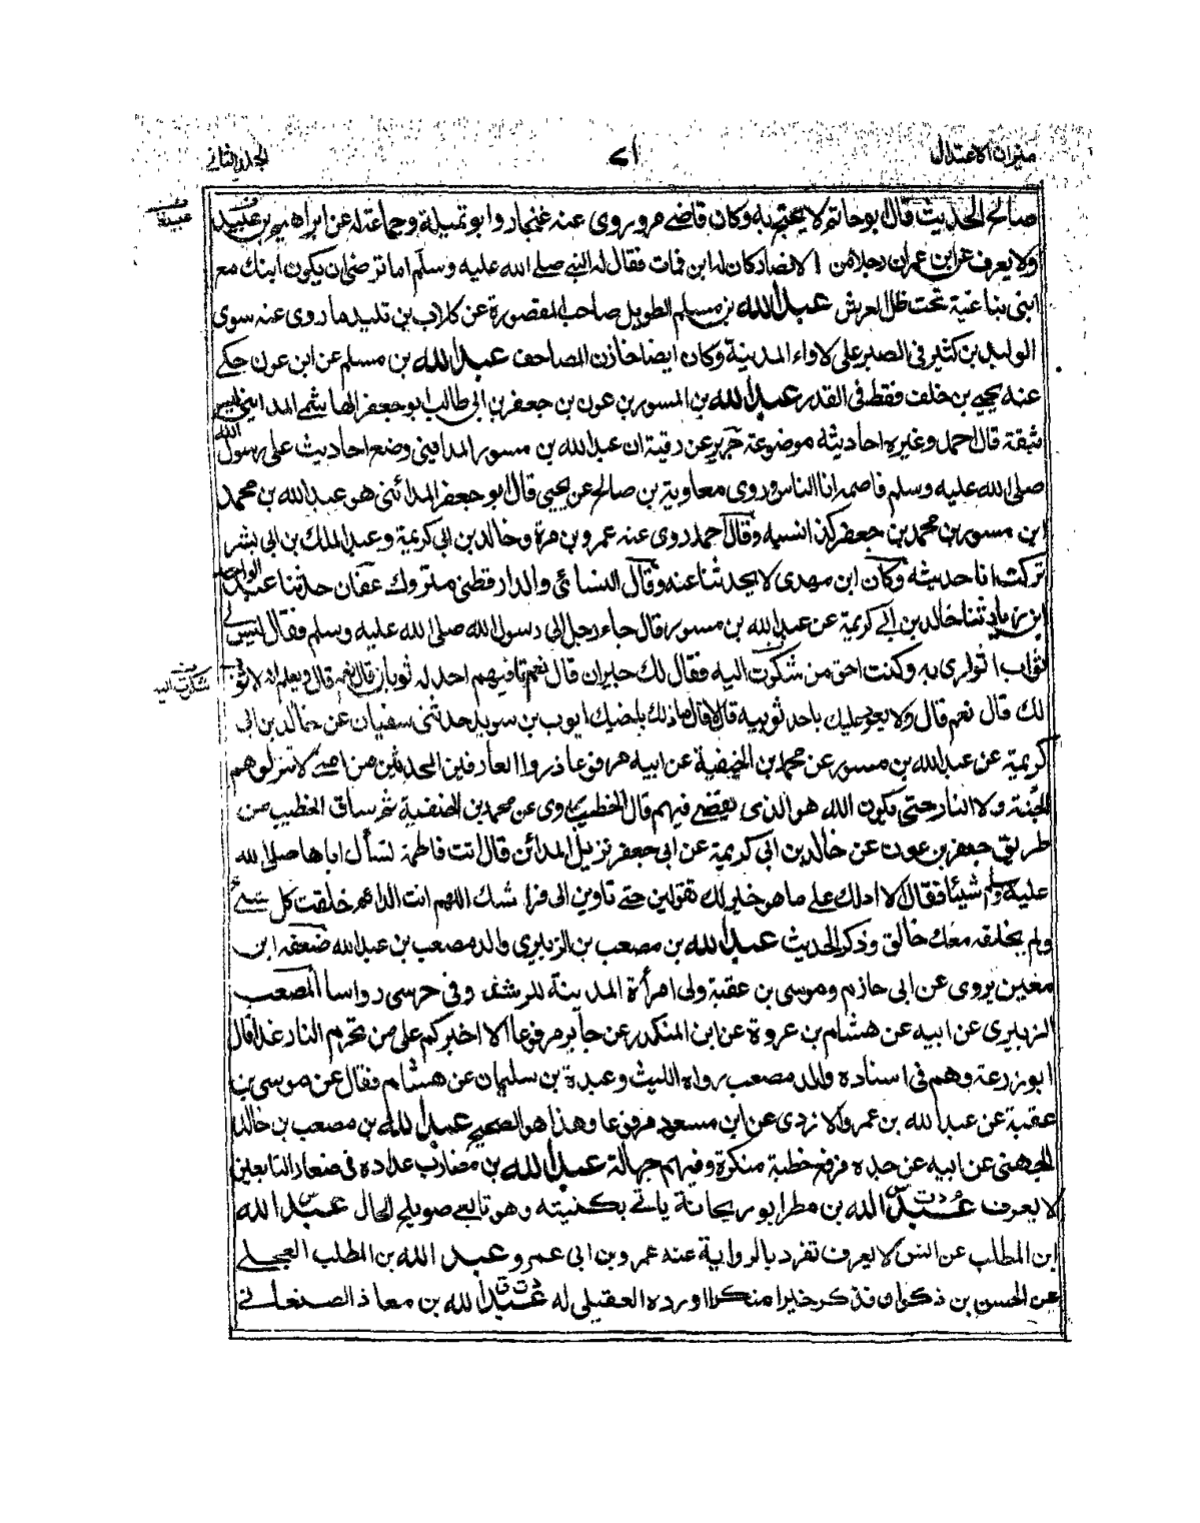 ميزان الاعتدال
٧١
المجلد الثاني
صالح الحديث قال ابو حاتم لا يحتج به وكان قاضي مرو روى عنه غنجار وابو تميلة وجماعة له عن ابراهيم بن عبيد
ولا يعرف عن ابن عمران رجلا من الانصار كان له ابن فمات فقال له النبي صلى الله عليه وسلم اما ترضى ان يكون ابنك مع
ابنى يناغيه تحت ظل العرش عبد الله بن مسلم الطويل صاحب المقصورة عن كلاب بن تليد ما روى عنه سوى
الوليد بن كثير في الصبر على لاواء المدينة وكان ايضا خازن المصاحف عبد الله بن مسلم عن ابن عون حكى
عنه يحيى بن خلف فقط في القدر عبد الله بن المسور بن عون بن جعفر بن ابى طالب ابو جعفر الهاشمي المدايني ليس
بثقة قال احمد وغيره احاديثه موضوعة جرير عن رقبة ان عبد الله بن مسور المدايني وضع احاديث على رسول الله
صلى الله عليه وسلم فاحتملها الناس وروى معاوية بن صالح عن يحيى قال ابو جعفر المدائنى هو عبد الله بن محمد
ابن مسور بن محمد بن جعفر كذا نسبه وقال احمد روى عنه عمرو بن مرة وخالد بن ابى كريمة وعبد الملك بن ابى بشر
تركت انا حديثه وكان ابن مهدى لا يحدثنا عنه وقال النسائى والدارقطنى متروك عفان حدثنا عبد الواحد
ابن زياد ثنا خالد بن ابى كريمة عن عبد الله بن مسور قال جاء رجل الى رسول الله صلى الله عليه وسلم فقال ليس لى
ثواب اتوارى به وكنت احق من شكوت اليه فقال لك جيران قال نعم قال فيهم احد له ثوبان قال نعم قال ويعلم انه لا ثوب
لك قال نعم قال ولا يعود عليك باحد ثوبيه قال لا قال ما ذلك باخيك ايوب بن سويد حدثنى سفيان عن خالد بن ابى
كريمة عن عبد الله بن مسور عن محمد بن الحنفية عن ابيه مرفوعا ذروا العارفين المحدثين من امتى لا تنزلوهم
الجنة ولا النار حتى يكون الله هو الذى يقضى فيهم قال الخطيب روى عن محمد بن الحنفية ثم ساق الخطيب من
طريق جعفر بن عون عن خالد بن ابى كريمة عن ابى جعفر نزيل المدائن قال اتت فاطمة تسأل اباها صلى الله
عليه وسلم شيئا فقال الا ادلك على ما هو خير لك تقولين حتى تاوين الى فراشك اللهم انت الدائم خلقت كل شيء
ولم يخلقه معك خالق وذكر الحديث عبد الله بن مصعب بن الزبيرى والد مصعب بن عبد الله ضعفه ابن
معين يروى عن ابى حازم وموسى بن عقبة ولى امرأة المدينة للرشيد وفى حرسى رواسا المصعب
الزبيرى عن ابيه عن هشام بن عروة عن ابن المنكدر عن جابر مرفوعا الا اخبركم على من تحرم النار غدا قال
ابو زرعة وهم فى اسناده والد مصعب رواه الليث وعبدة بن سليمان عن هشام فقال عن موسى بن
عقبة عن عبد الله بن عمرو الازدى عن ابن مسعود مرفوعا وهذا هو الصحيح عبد الله بن مصعب بن خالد
الجهنى عن ابيه عن جده فرفع خطبة منكرة وفيهم جهالة عبد الله بن مضارب عداده فى صغار التابعين
لا يعرف عبد الله بن مطر ابو ريحانة ياتى بكنيته وهو تابعى صويلح الحال عبد الله
ابن المطلب عن انس لا يعرف تفرد بالرواية عنه عمرو بن ابى عمرو عبد الله بن المطلب العجلى
عن الحسن بن ذكوان فذكر خبرا منكرا اورده العقيلى له عبد الله بن معاذ الصنعانى
عبيد
شكوت اليه